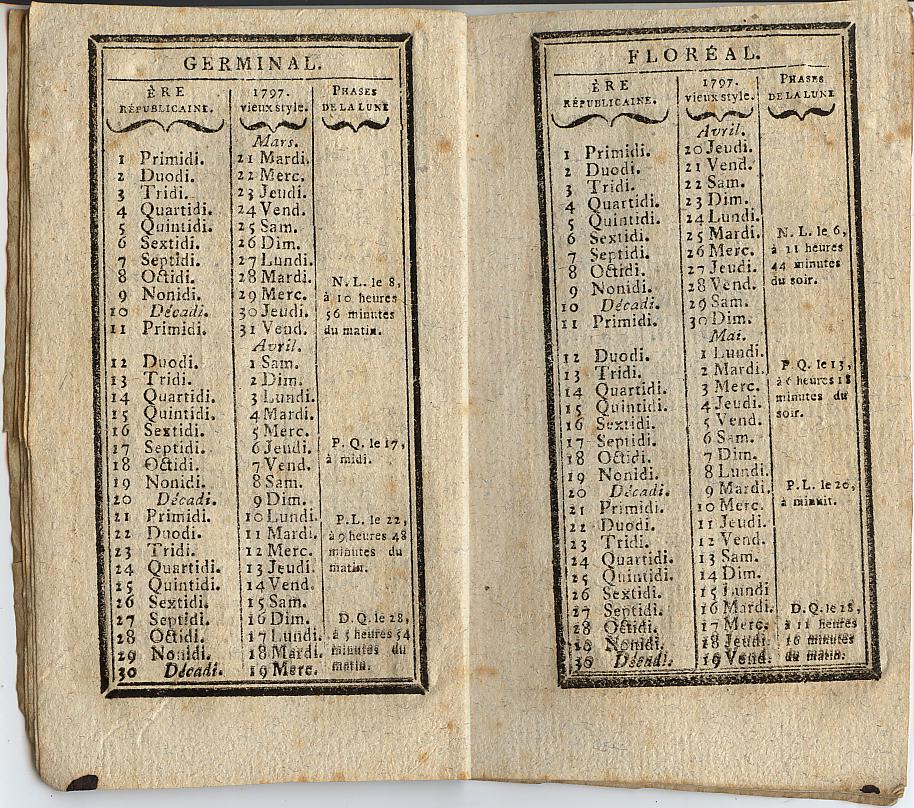 GERMINAL.
ÈRE RÉPUBLICAINE. 1797. vieux style. PHASES DE LA LUNE
Mars.
1 Primidi. 21 Mardi.
2 Duodi. 22 Merc.
3 Tridi. 23 Jeudi.
4 Quartidi. 24 Vend.
5 Quintidi. 25 Sam.
6 Sextidi. 26 Dim.
7 Septidi. 27 Lundi.
8 Octidi. 28 Mardi. N. L. le 8,
9 Nonidi. 29 Merc. à 10 heures
10 Décadi. 30 Jeudi. 56 minutes
11 Primidi. 31 Vend. du matin.
Avril.
12 Duodi. 1 Sam.
13 Tridi. 2 Dim.
14 Quartidi. 3 Lundi.
15 Quintidi. 4 Mardi.
16 Sextidi. 5 Merc.
17 Septidi. 6 Jeudi. P. Q. le 17,
18 Octidi. 7 Vend. à midi.
19 Nonidi. 8 Sam.
20 Décadi. 9 Dim.
21 Primidi. 10 Lundi. P. L. le 22,
22 Duodi. 11 Mardi. à 9 heures 48
23 Tridi. 12 Merc. minutes du
24 Quartidi. 13 Jeudi. matin.
25 Quintidi. 14 Vend.
26 Sextidi. 15 Sam.
27 Septidi. 16 Dim. D. Q. le 28,
28 Octidi. 17 Lundi. à 5 heures 54
29 Nonidi. 18 Mardi. minutes du
30 Décadi. 19 Merc. matin.
FLORÉAL.
ÈRE RÉPUBLICAINE. 1797. vieux style. PHASES DE LA LUNE
Avril.
1 Primidi. 20 Jeudi.
2 Duodi. 21 Vend.
3 Tridi. 22 Sam.
4 Quartidi. 23 Dim.
5 Quintidi. 24 Lundi.
6 Sextidi. 25 Mardi. N. L. le 6,
7 Septidi. 26 Merc. à 11 heures
8 Octidi. 27 Jeudi. 44 minutes
9 Nonidi. 28 Vend. du soir.
10 Décadi. 29 Sam.
11 Primidi. 30 Dim.
Mai.
12 Duodi. 1 Lundi.
13 Tridi. 2 Mardi. P Q. le 13,
14 Quartidi. 3 Merc. à 6 heures 18
15 Quintidi. 4 Jeudi. minutes du
16 Sextidi. 5 Vend. soir.
17 Septidi. 6 Sam.
18 Octidi. 7 Dim.
19 Nonidi. 8 Lundi.
20 Décadi. 9 Mardi. P. L. le 20,
21 Primidi. 10 Merc. à minuit.
22 Duodi. 11 Jeudi.
23 Tridi. 12 Vend.
24 Quartidi. 13 Sam.
25 Quintidi. 14 Dim.
26 Sextidi. 15 Lundi
27 Septidi. 16 Mardi. D. Q. le 28,
28 Octidi. 17 Merc. à 11 heures
29 Nonidi. 18 Jeudi. 16 minutes
30 Décadi. 19 Vend. du matin.